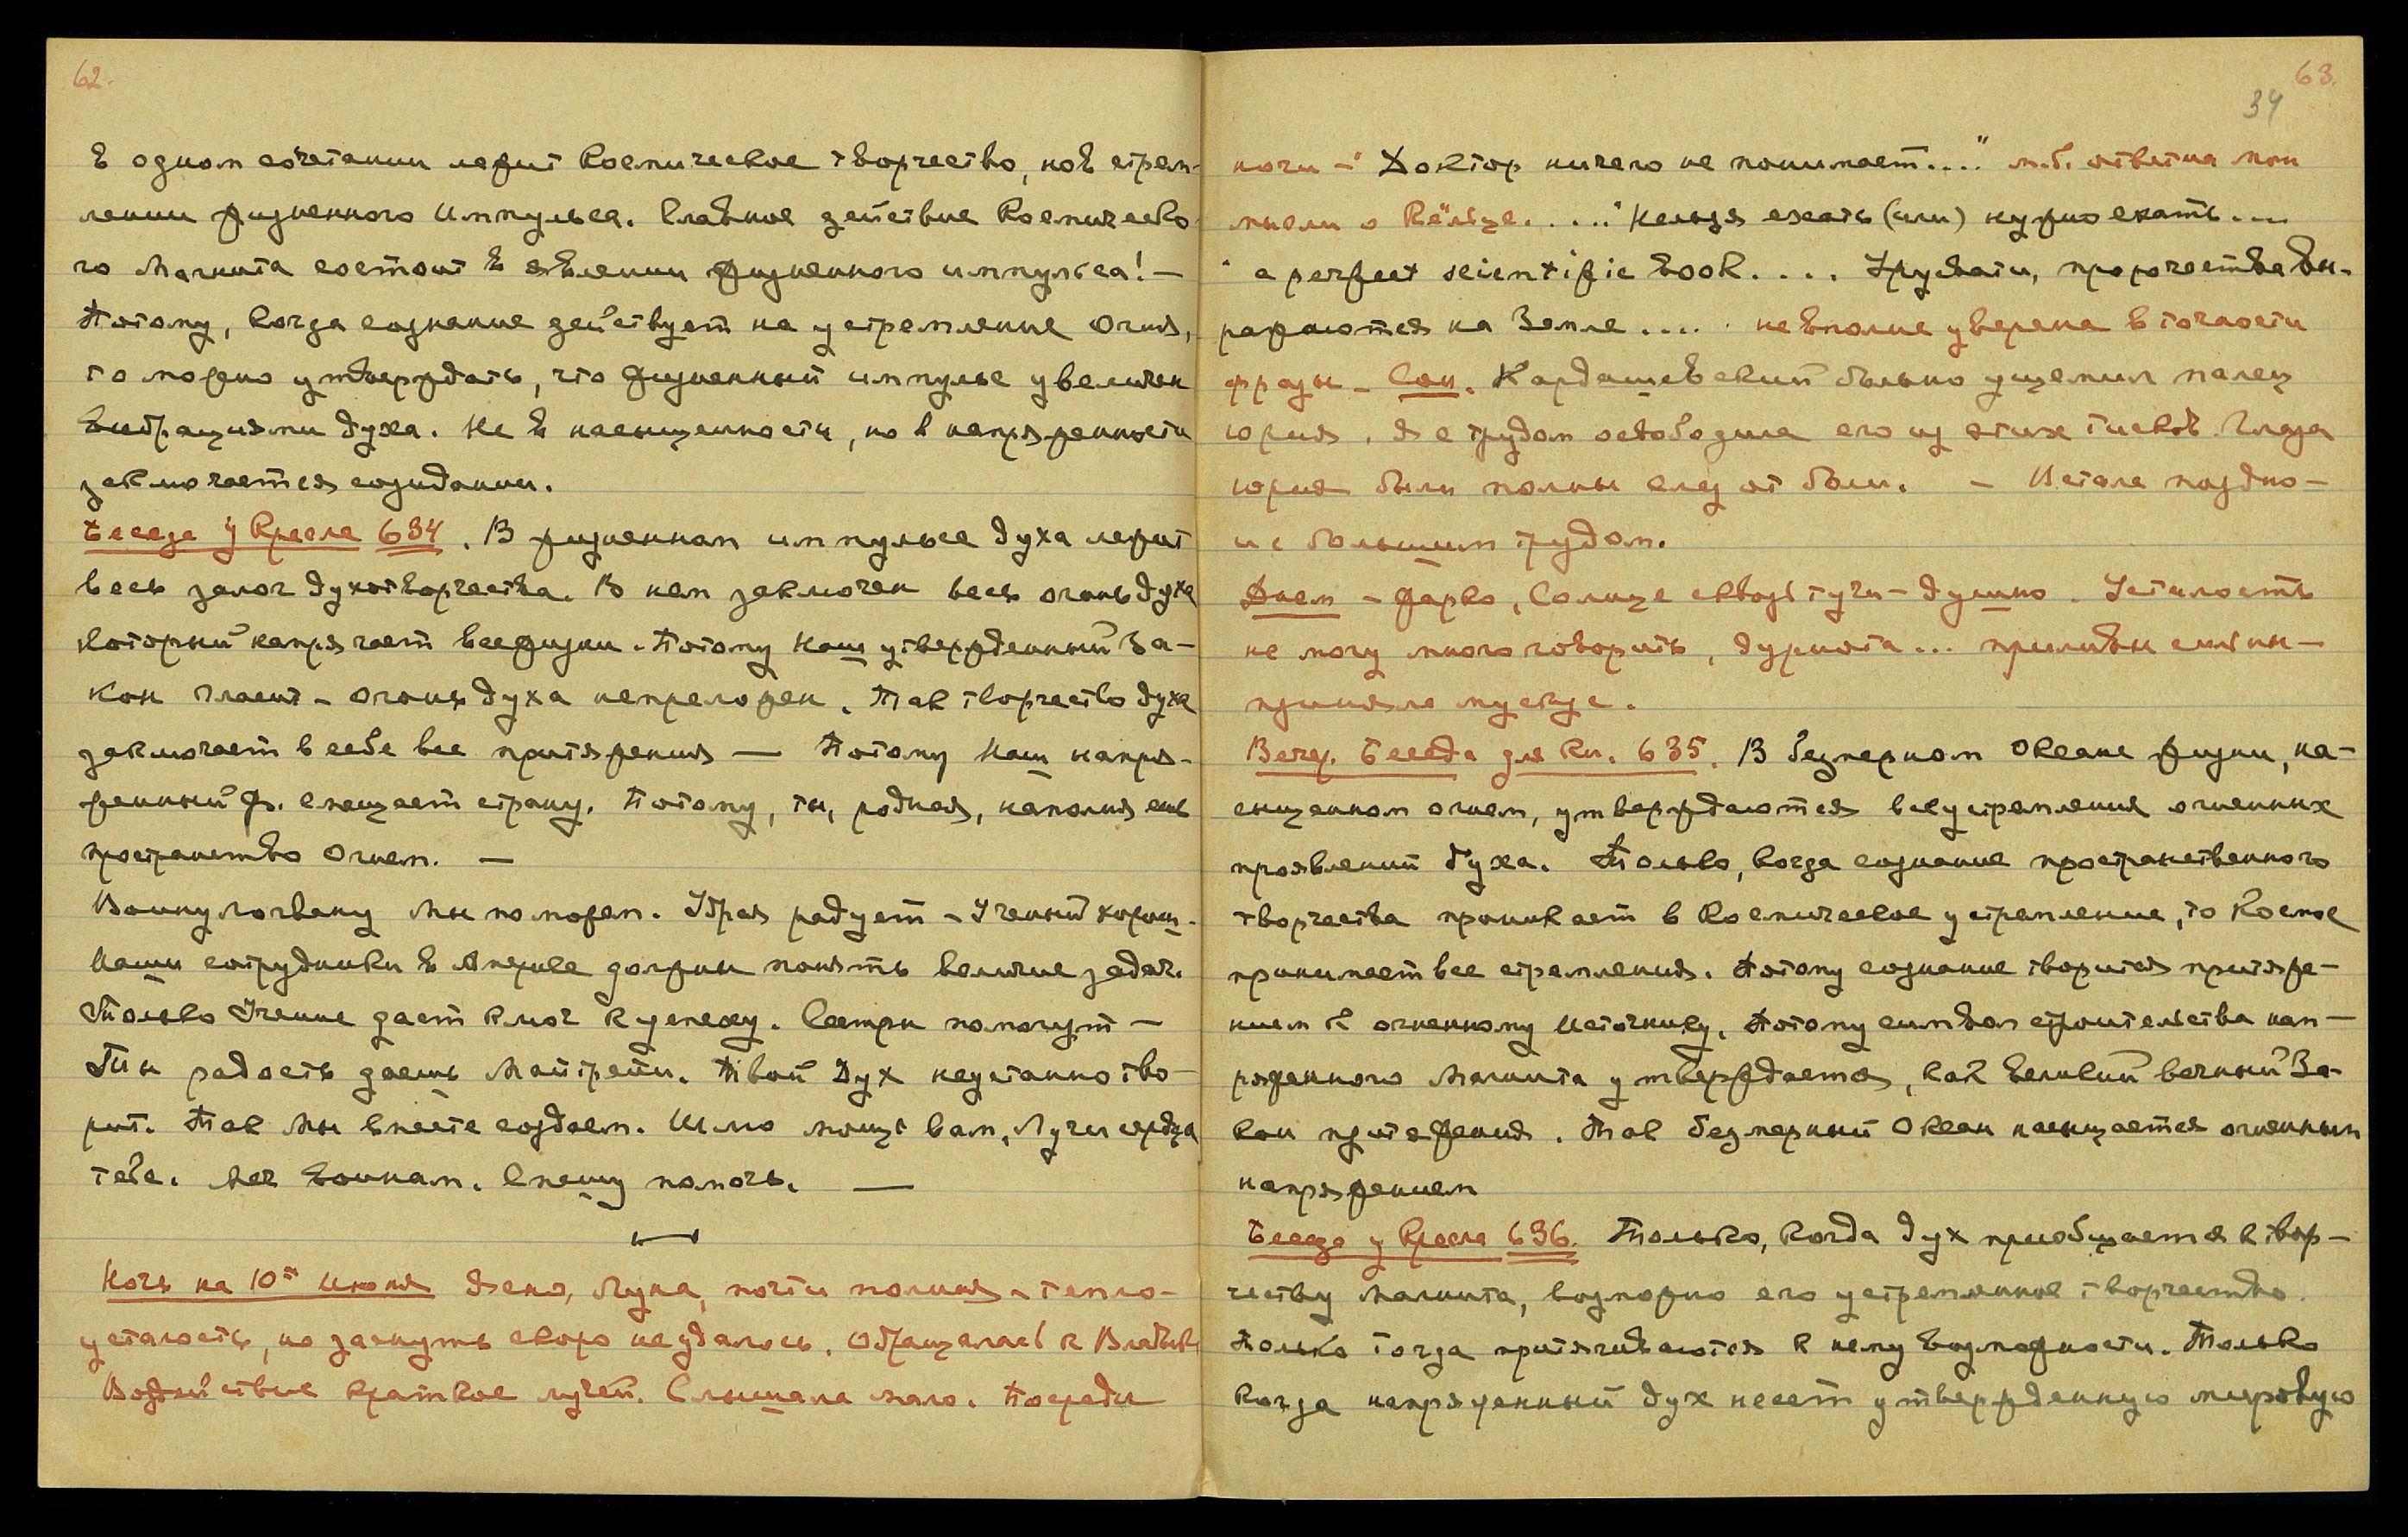 62.
в одном сочетании лежит Космическое творчество, но в стрем-
лении жизненного Импульса. Главное действие Космическо-
го Магнита состоит в явлении жизненного импульса! —
Потому, когда сознание действует на устремление Огня,
то можно утверждать, что жизненный импульс увеличен
вибрациями духа. Не в насыщенности, но в напряженности
заключается созидании.
Беседа у Кресла 634. В жизненном импульсе духа лежит
весь залог духотворчества. В нем заключен весь огонь духа
который напрягает все жизни. Потому Наш утвержденный За-
кон гласит — огонь духа непреложен. Так творчество духа
заключает в себе все притяжения — Потому Наш напря-
женный Ф. спешает страну. Потому, ты, родная, наполняешь
пространство Огнем. —
Мы поможем. Удрая радует — Ученый хорош.
Наши сотрудники в Америке должны понять величие задач.
Только Учение дает ключ к успеху. Сестры помогут —
Ты радость даешь Майтрейи. Твой Дух неустанно тво-
рит. Так Мы вместе создаем. Шлю мощь вам, Лучи сердца
тебе. Меч воинам. Спешу помочь. —
Ночь на 10ое Июня Ясно, Луна, почти полная — тепло —
усталость, но заснуть скоро не удалось. Обращалась к Владыке
Воздействие краткое лучей. Слышала мало. Посреди
63.
34
ночи — "Доктор ничего не понимает...." м.б. ответ на мои
мысли о Кёльце. .... "Нельзя ехать (или) нужно ехать....
"a perfect scientific book.... Урусвати, пророчества вы-
ражаются на Земле..... не вполне уверена в точности
фразы — Сон. Кардашевский больно ущемил палец
Юрия. Я с трудом освободила его из этих тисков. Глаза
Юрия были полны слез от боли. — Встала поздно —
и с большим трудом.
Днем — жарко, Солнце сквозь тучи — душно. Усталость
не могу много говорить, дурнота... приливы сильны —
приняла мускус.
Вечер. Беседа для Кн. 635. В безмерном Океане жизни, на-
сыщенном огнем, утверждаются все устремления огненных
проявлений духа. Только, когда сознание пространственного
творчества проникает в Космическое устремление, то Космос
принимает все стремления. Потому сознание творится притяже-
нием к огненному Источнику. Потому символ строительства нап-
ряженного Магнита утверждается, как великий вечный За-
кон притяжения. Так безмерный Океан насыщается огненным
напряжением
Беседа у Кресла 636. Только, когда дух приобщается к твор-
честву Магнита, возможно его устремленное творчество.
Только тогда притягиваются к нему возможности. Только
когда напряженный дух несет утвержденную мировую